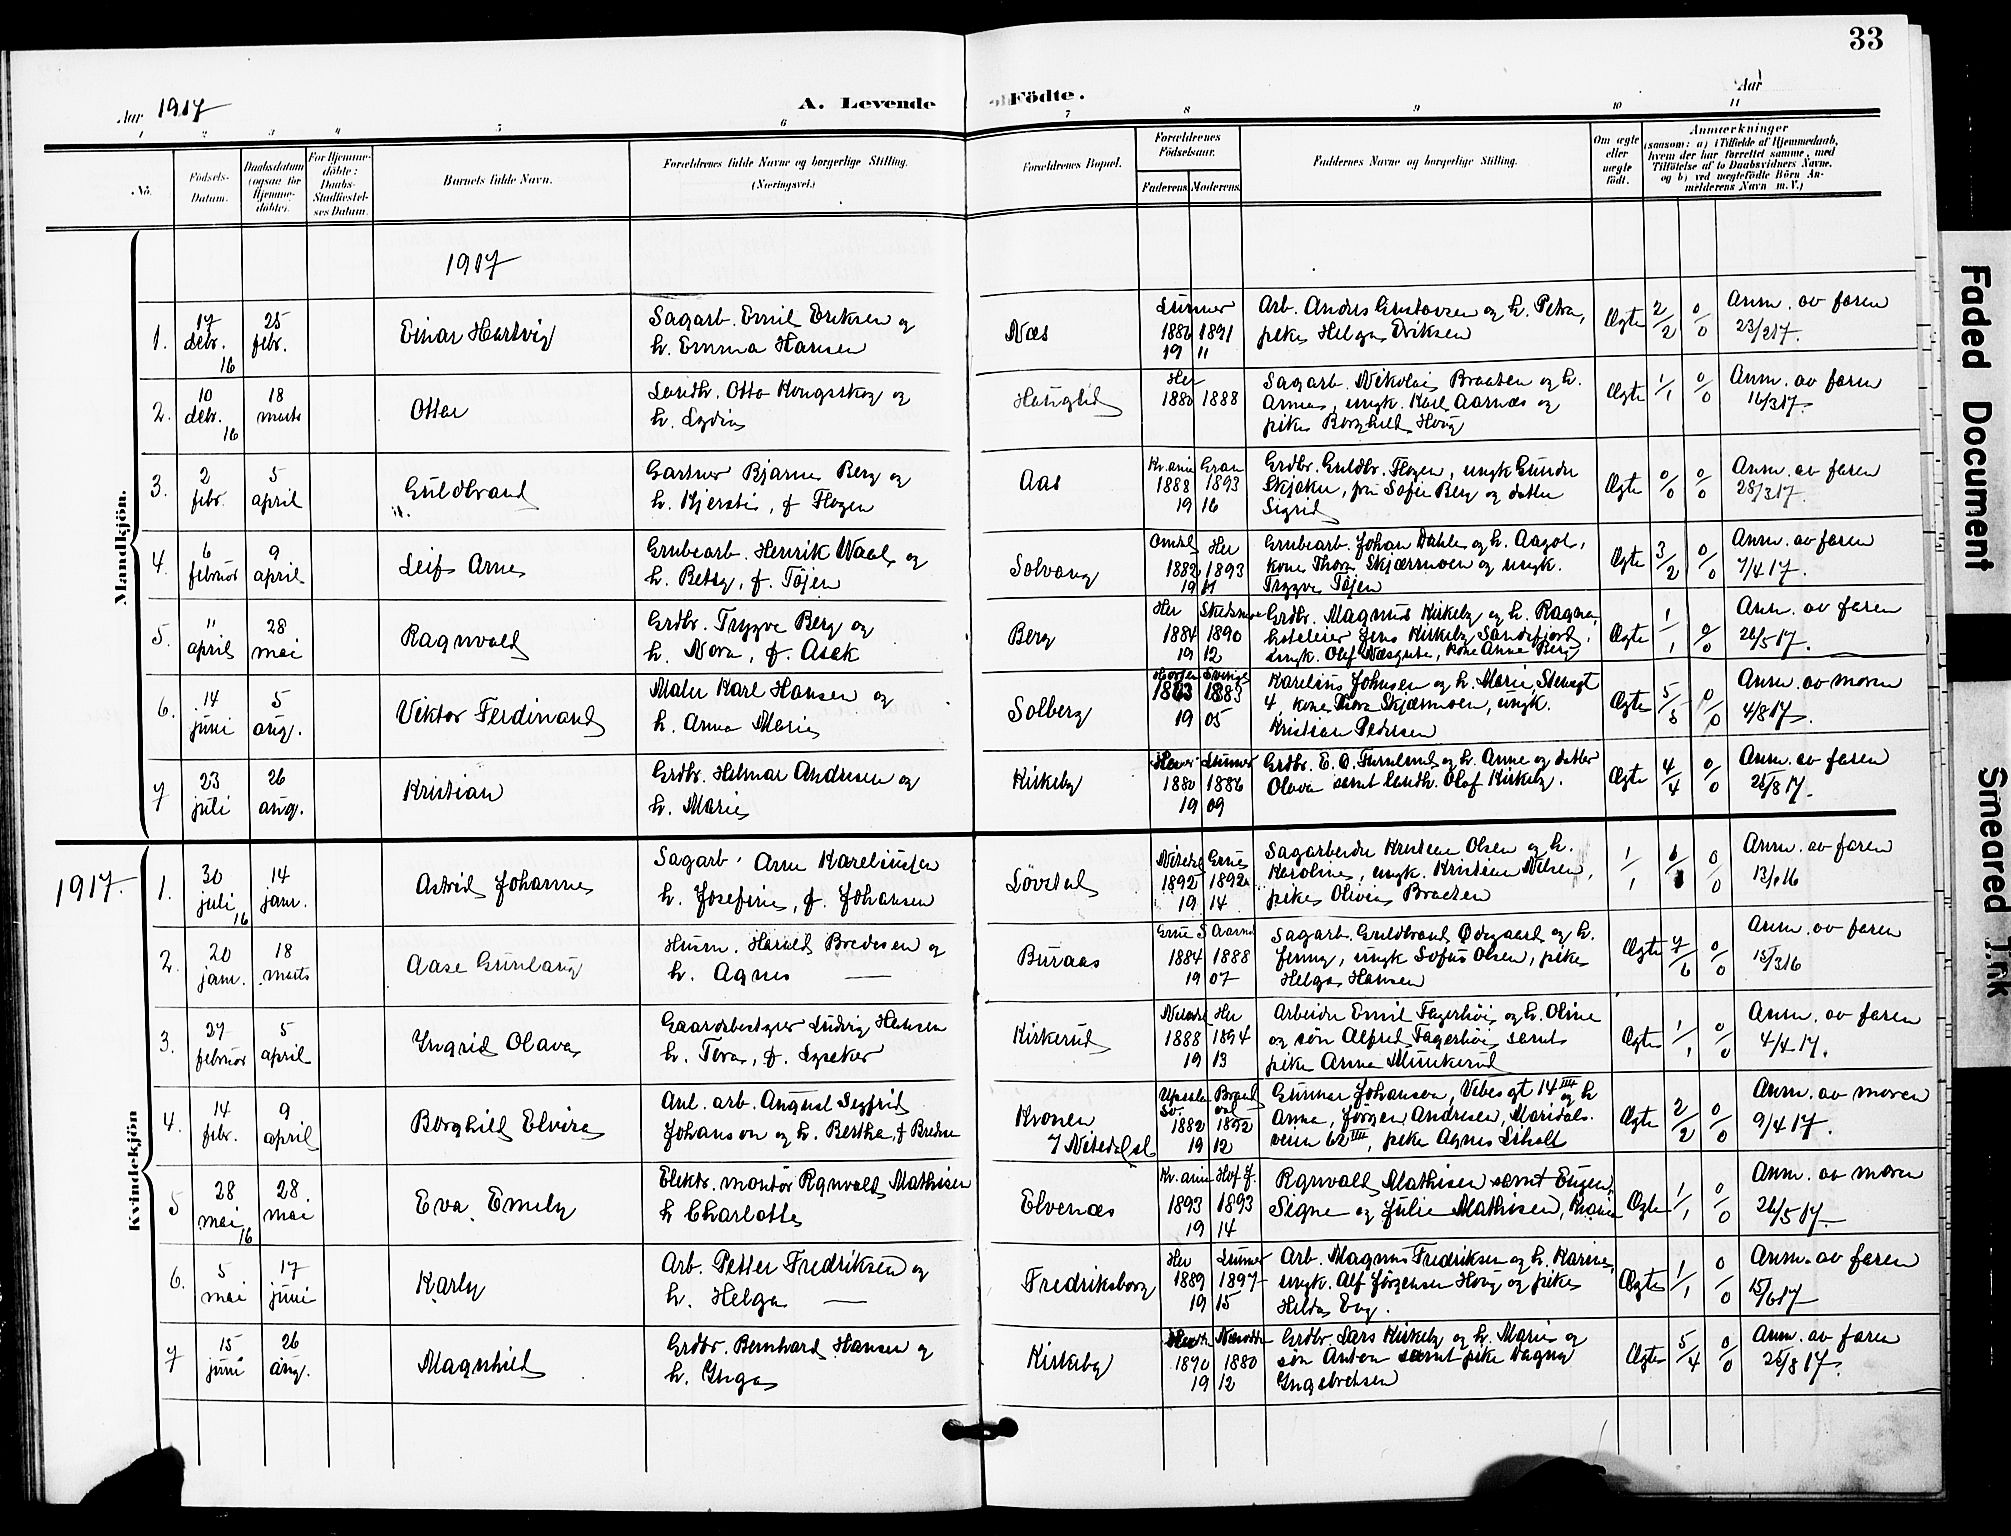 33
Aar 1917
A. Levende Födte.
Aar
1 2 3 4 5 6 7 8 9 10 11
No.
Födsels-Datum.
Daabsdatum (ogsaa for Hjemme-döbte).
For Hjemme-döbte: Daabs-Stadfæstel-ses Datum.
Barnets fulde Navn.
Forældrenes fulde Navne og borgerlige Stilling. (Næringsvei.)
Forældrenes Bopæl.
Forældrenes Födselsaar.
Faderens. Moderens.
Faddernes Navne og borgerlige Stilling.
Om ægte eller uægte født.
Anmærkninger
(saasom: a) i Tilfælde af Hjemmedaab, hvem der har forrettet samme, med Tilföielse af to Daabsvidners Navne, og b) ved uægtefödte Börn An-melderens Navn m. V.)
Mandkjön.
1917
1. 17 debr. 16 25 febr. Einar Hartvig Sagarb. Emil Eriksen og h. Emma Hansen Næs Lunner 1886 1891 19 11 Arb. Anders Gustavsen og h. Petra, pike Helga Eriksen Ægte 2/2 0/0 Anm. av faren 23/2 17.
2. 10 debr. 16 18 marts Ottar Landh. Otto Kongsskog og h. Lydia Hauglid Her 1880 1888 Sagarb. Nikolai Braaten og h. Anna, ungk. Karl Aarnæs og pike Borghild Houg Ægte 1/1 0/0 Anm. av faren 16/3 17.
3. 2 febr. 5 april Guldbrand Gartner Bjarne Berg og h. Kjersti, f. Flogen Aas Kr.ania Gran 1888 1893 19 16 Grdbr. Guldbr. Flogen, ungk Gunder Skjaker, fru Sofie Berg og datter Sigrid Ægte 0/0 0/0 Anm. av faren 28/3 17.
4. 6 februar 9 april Leif Arne Grubearb. Henrik Waal og h. Betsy, f. Töjen Solvang Her 1882 1893 19 Grubearb. Johan Dahle og h. Aagot, kone Thora Skjærmoen og ungk. Trygve Töjen Ægte 3/2 0/0 Anm. av faren 7/4 17.
5. 11 april 28 mai Ragnvald Grdbr. Trygve Berg og h. Nora, f. Asak Berg Her Skedsmo 1884 1890 19 12 Grdbr. Magnus Kirkeby og h. Ragna, hoteleier Jens Kirkeby Sandefjord, ungk. Olaf Næsgute, kone Anne Berg Ægte 1/1 0/0 Anm. av faren 26/5 17.
6. 14 juni 5 aug. Viktor Ferdinand Maler Karl Hansen og h. Anna Marie Solberg Horten Sverige 1883 1883 19 05 Karelius Johnsen og h. Marie, Stensgt 4, kone Thora Skjærmoen, ungk. Kristian Pedersen Ægte 5/5 0/0 Anm. av moren 4/8 17.
7 23 juli 26 aug. Kristian Grdbr. Hilmar Andresen og h. Marie Kirkeby Lunner 1880 1886 19 09 Grdbr. E. O. Furulund og h. Anne og datter Olava samt landh. Olaf Kirkeby. Ægte 4/4 0/0 Anm. av faren 25/8 17.
1917.
Kvindekjön
1. 30 juli 16 14 jan. Astrid Johanne Sagarb. Arne Kareliussen h. Josefine, f. Johansen Lövstad Nitedal Grue 1892 1892 19 14 Sagarbeider Kristian Olsen og h. Karoline, ungk. Kristian Nilsen, pike Olivia Braaten 1/1 0/0 Anm. av faren 13/1 16
2. 20 jan. 18 marts Aase Gunlaug Husm. Harald Bredesen og h. Agnes — Buraas Grue S Aarnes 1884 1888 19 07 Sagarb. Guldbrand Ødegaard og h. Jenny, ungk Sofus Olsen, pike Helga Hansen Ægte 7/6 0/0 Anm. av faren 15/3 16
3. 27 februar 5 april Yngrid Olava Gaardsbestyrer Ludvig Hansen h. Tora, f. Lysaker Kirkerud Nitedal Her 1888 1894 19 13 Arbeider Emil Fagerhöi og h. Oline og sön Alfred Fagerhöi samt pike Anna Munkerud Ægte 1/1 0/0 Anm. av faren 4/4 17.
4. 14 febr. 9 april Borghild Elvira Anl. arb. August Segfrid Johanson og h. Bertha, f Bredsen Kronen 7 Nitedal st. Upsala Sv. 1882 1892 19 12 Gunnar Johanson, Vibesgt 14 III og h Anna, Jörgen Andresen, Maridals-veien 62 III, pike Agnes Liholt Ægte 2/2 0/0 Anm. av moren 9/4 17.
5 28 mai 16 28. mai Eva Emily Elektr. montör Rgnvald Mathisen h Charlotte Elvenæs Kr.ania Hof J. 1893 1893 19 14 Rgnvald Mathisen samt Eugen, Signe og Julie Mathisen, Kr.ania Ægte 1/1 0/0 Anm. av moren 26/5 17.
6. 5 mai 17 juni Karly Arb. Petter Fredriksen og h. Helga — Fredriksborg Her Lunner 1889 1897 19 15 Arb. Magnus Fredriksen og h. Karine, ungk. Alf Jörgensen Houg og pike Hilda Eng. Ægte 1/1 0/0 Anm. av faren 15/6 17
7 15 juni 26 aug. Magnhild Grdbr. Bernhard Hansen og h. Ynga Kirkeby 1870 1880 19 12 Grdbr. Lars Kirkeby og h. Marie og sön Anton samt pike Dagny Yngebretsen Ægte 5/4 0/0 Anm. av faren 25/8 17.
Faded Document
Smeared Ink